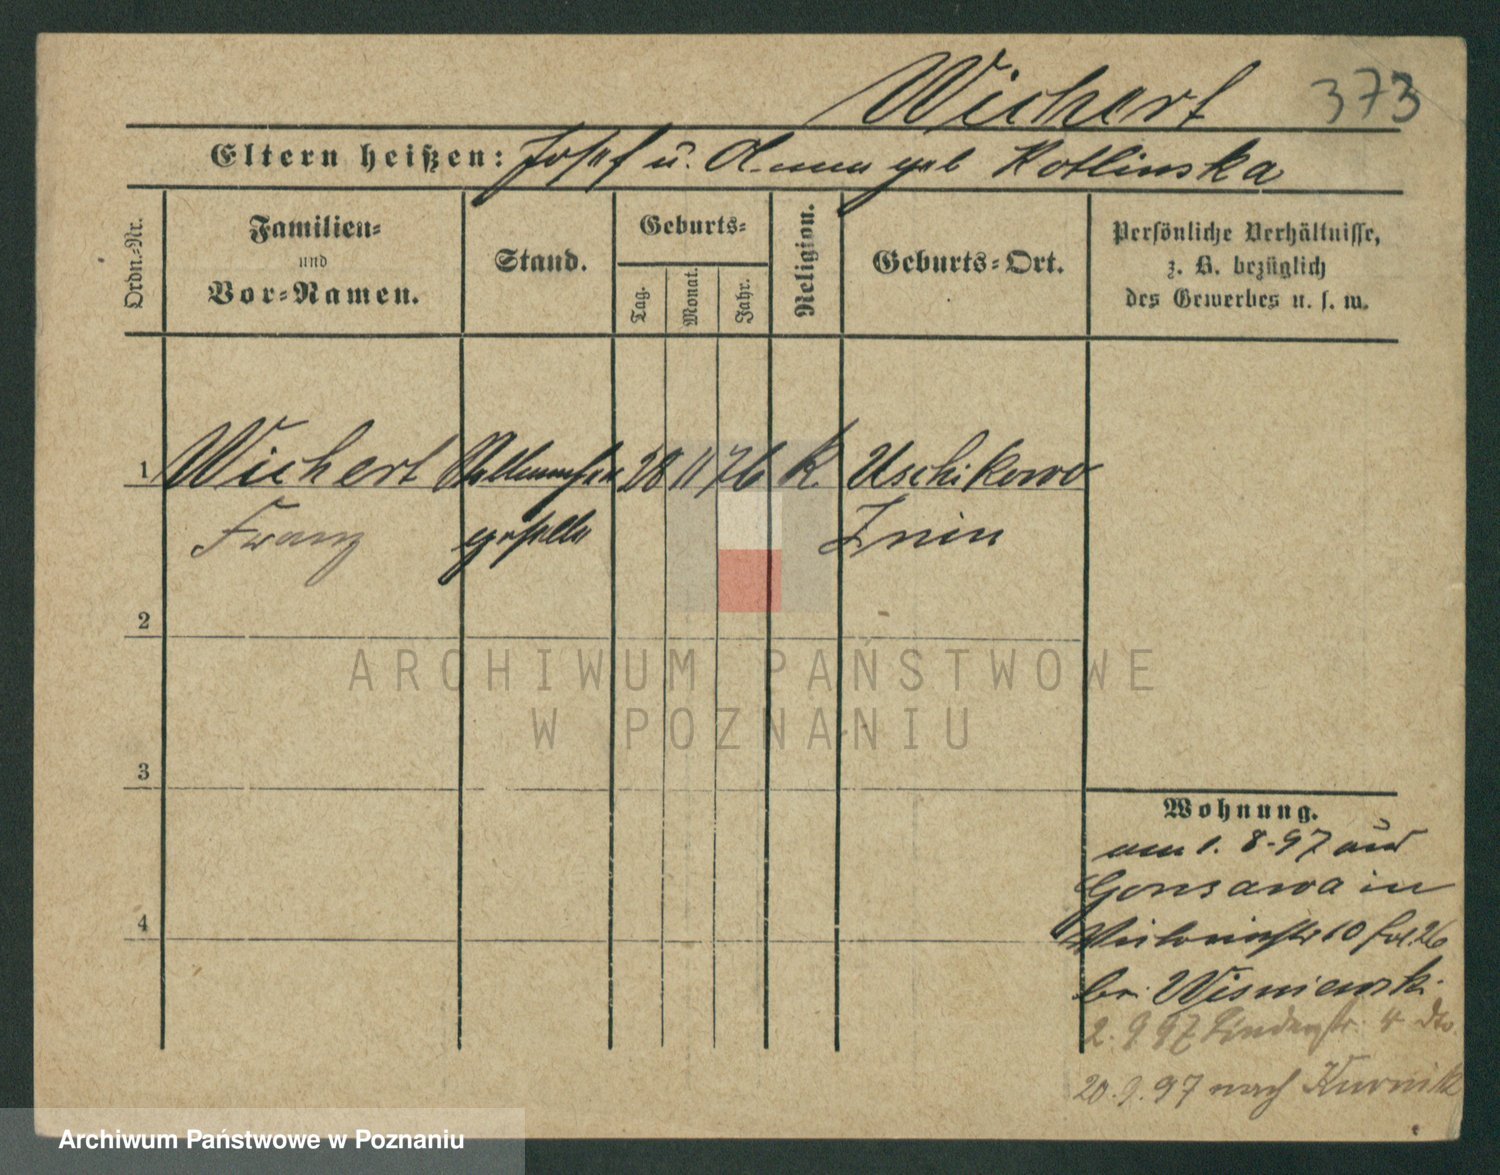 Wichert 373
Eltern heißen: Josef u. Anna geb Kotlinska
Ordn.-Nr.
Familien-
und
Vor-Namen.
Stand.
Geburts-
Tag.
Monat.
Jahr.
Religion.
Geburts-Ort.
Persönliche Verhältnisse,
z. B. bezüglich
des Gewerbes u. s. w.
1 Wichert 28 11 76 K. Uschikowo
Franz geselle Znin
2
3
4
Wohnung.
am 1. 8. 97 aus
Gonsawa in
10
bei Wisniewski.
2. 9 97 Lindenstr. 4 dto
20. 9. 97 nach Kurnik
ARCHIWUM PAŃSTWOWE
W POZNANIU
Archiwum Państwowe w Poznaniu